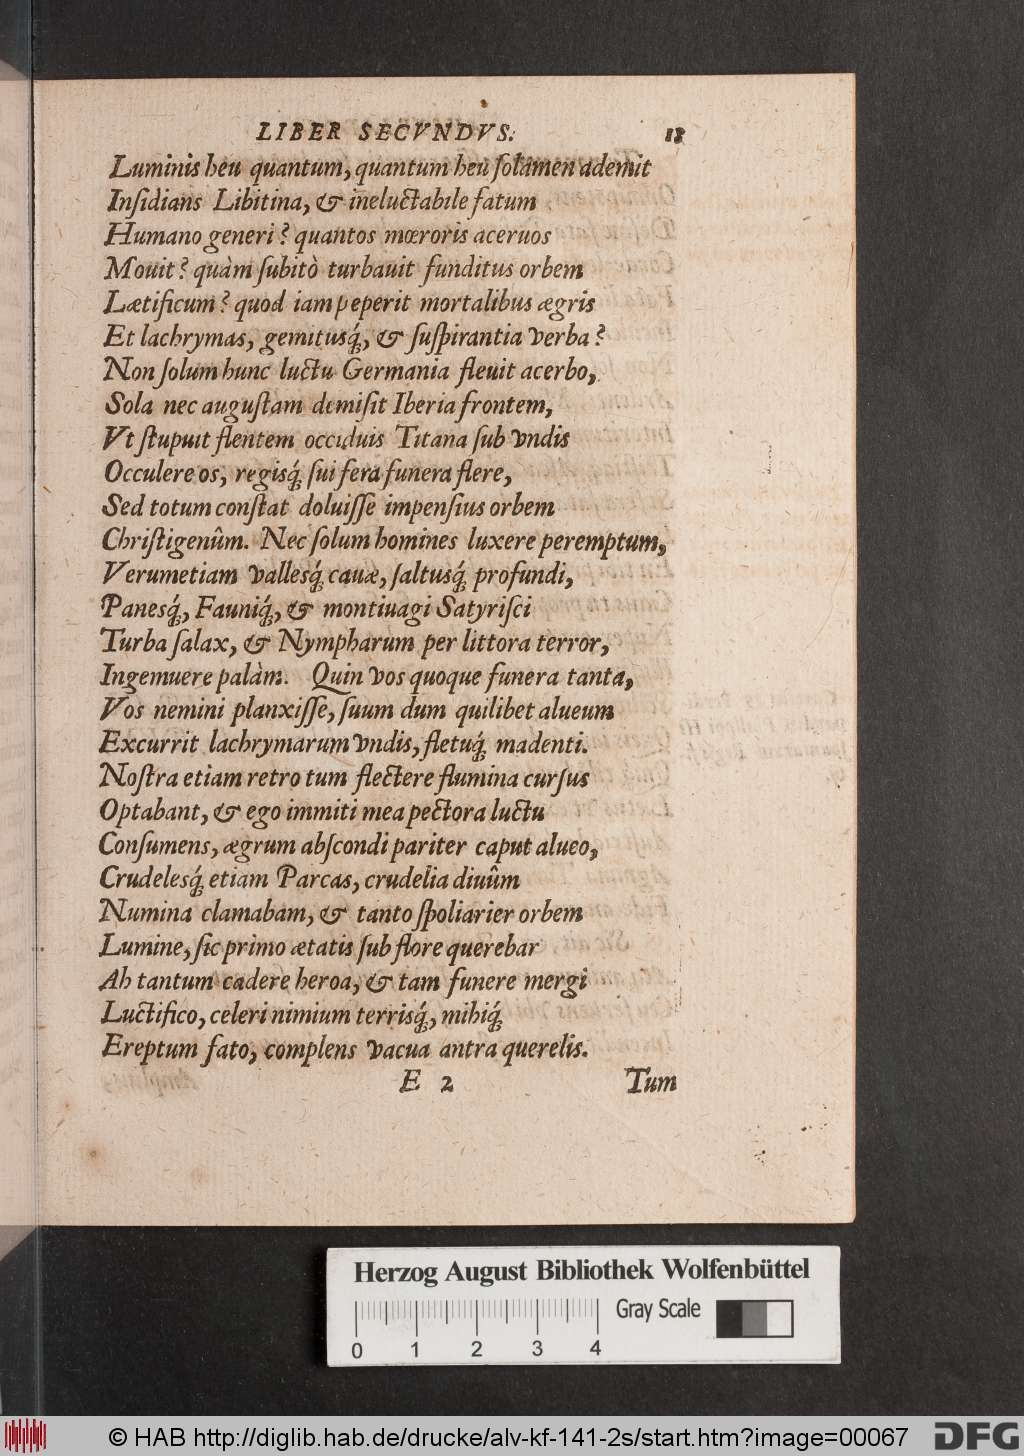 LIBER SECVNDVS. 18
Luminis heu quantum, quantum heu ſolamen ademit
Inſidians Libitina, & ineluctabile fatum
Humano generi? quantos mœroris aceruos
Mouit? quàm ſubitò turbauit funditus orbem
Lætificum? quod iam peperit mortalibus ægris
Et lachrymas, gemitusq́, & ſuſpirantia verba?
Non ſolum hunc luctu Germania fleuit acerbo,
Sola nec auguſtam demiſit Iberia frontem,
Vt ſtupuit flentem occiduis Titana ſub vndis
Occulere os, regisq́ ſui fera funera flere,
Sed totum conſtat doluiſſe impenſius orbem
Chriſtigenûm. Nec ſolum homines luxere peremptum,
Verumetiam vallesq́ cauæ, ſaltusq́ profundi,
Panesq́, Fauniq́, & montiuagi Satyriſci
Turba ſalax, & Nympharum per littora terror,
Ingemuere palàm. Quin vos quoque funera tanta,
Vos nemini planxiſſe, ſuum dum quilibet alueum
Excurrit lachrymarum vndis, fletuq́ madenti.
Noſtra etiam retro tum flectere flumina curſus
Optabant, & ego immiti mea pectora luctu
Conſumens, ægrum abſcondi pariter caput alueo,
Crudelesq́ etiam Parcas, crudelia diuûm
Numina clamabam, & tanto ſpoliarier orbem
Lumine, ſic primo ætatis ſub flore querebar
Ah tantum cadere heroa, & tam funere mergi
Luctifico, celeri nimium terrisq́, mihiq́
Ereptum fato, complens vacua antra querelis.
E 2 Tum
Herzog August Bibliothek Wolfenbüttel
Gray Scale
0 1 2 3 4
© HAB http://diglib.hab.de/drucke/alv-kf-141-2s/start.htm?image=00067
DFG